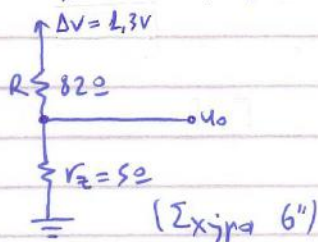 ΔV = 1,3V
R 82Ω
u₀
r_z = 5Ω
(Σχήμα 6")